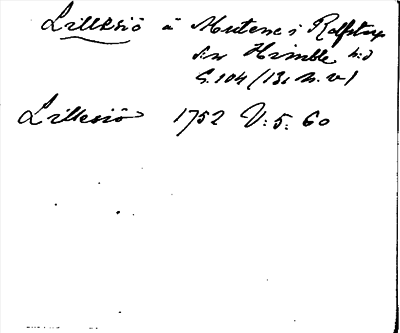 Lillesiö ä Mutene i Rolfstorp
sn Himble hd
S. 104 (131 n. v.)
Lillesiö 1752 V: 5: 60